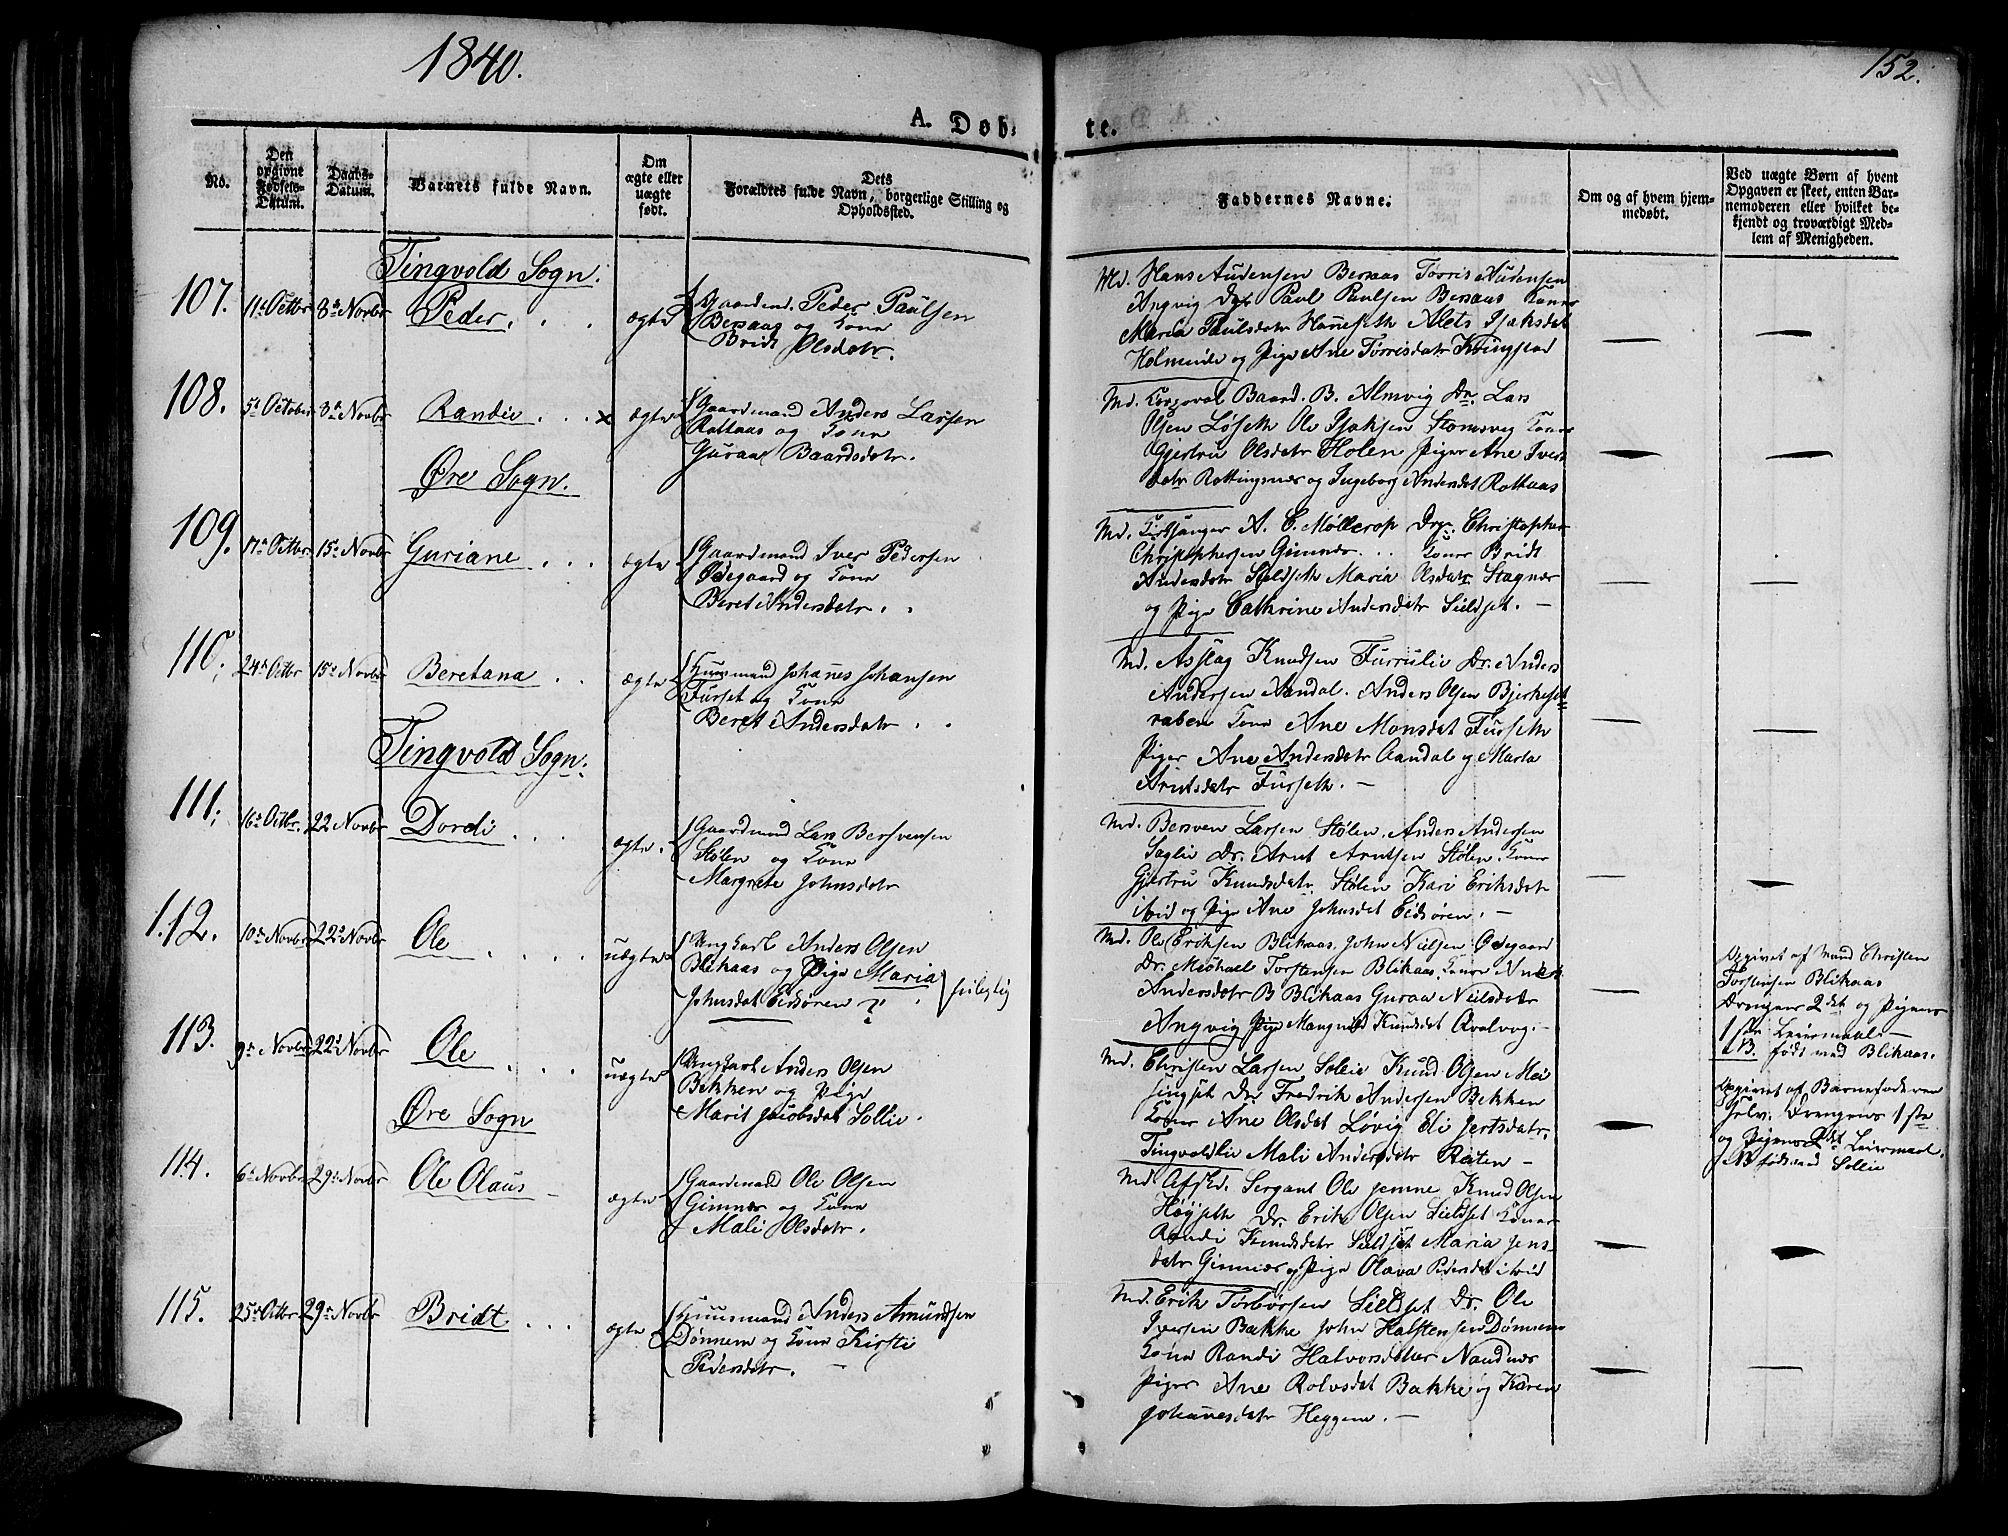 1840.
152.
A. Döb-
te.
No.
Den opgivne Fødsels-Datum.
Daabs-Datum.
Barnets fulde Navn.
Om ægte eller uægte født.
Dets Forældres fulde Navn, borgerlige Stilling og Opholdssted.
Faddernes Navne.
Om og af hvem hjemmedøbt.
Ved uægte Børn af hvem Opgaven er skeet, enten Barnemoderen eller hvilket bekjendt og troværdigt Medlem af Menigheden.
Tingvold Sogn:
107. 11te Octbr 8de Novbr Peder. ægte
Gaardm. Peder Paulsen
Bersaas og Kone
Bridt Olsdatr.
Md. Hans Audensen Bersaas Torris Audensen
Angvig Dr Paul Paulsen Bersaas Koner
Maria Paulsdatr Hanneseth Alets Isaksdat
Holmeide og Pige Ane Torrisdatr Kringstad
108. 5te October 8de Novbr Randie x ægte
Gaardmand Anders Larsen
Rottaas og Kone
Guraa Baardsdatr.
Md. Korporal Baard B. Almvig Dr. Lars
Olsen Løseth Ole Isaksen Stomsvig Koner
Gjertru Olsdatr Holen Piger Ane Iversdatr Rottingsnæs og Ingeborg Andersdat Rottaas
Øre Sogn.
109. 17de Octbr 15de Novbr Guriane ægte
Gaardmand Iver Pedersen
Ødegaard og Kone
Beret Andersdatr.
Md. Kirksanger A. C. Møllerop Dr. Christopher
Christophersen Gimnæs Koner Bridt
Andersdatr Sieldseth Maria Olsdatr Stagnæs
og Pige Cathrine Andersdatr Sieldset. -
110. 24de Octbr 15de Novbr Beretana ægte
Huusmand Johanes Johansen
Furset og Kone
Beret Andersdatr
Md. Asslag Knudsen Furrulie Dr. Anders
Andersen Aandal. Anders Olsen Bjerkeset
Kone Ane Monsdat Furseth
Piger Ane Andersdatr Aandal og Marta
Arntsdatr Furseth. -
Tingvold Sogn:
111. 16de Octbr. 22 Novbr Dordi ægte
Gaardmand Lars Bersvensen
Stølen og Kone
Margrete Johnsdatr
Md. Bersven Larsen Stølen, Anders Andersen
Saglie Dr. Arnt Arntsen Stølen. Koner
Gjertru Knudsdatr Stølen Kari Eriksdatr
ibid og Pige Ane Johnsdat Eidsøren. -
112. 10de Novbr 22de Novbr Ole uægte
Ungkarl Anders Olsen
Blikaas og Pige Maria
Johnsdat Eidsøren ?
Md. Ole Eriksen Blikaas, John Nielsen Ødegaard
Dr. Michael Torstensen Blikaas. Koner
Andersdatr B Blikaas Guraa Nielsdatr
Angvig Pige Mangnild Knudsdat Qvalvog. -
Opgivet af Mand Christen
Torstensen Blikaas
Drengens 2det og Pigens
1ste Leiermaal -
NB. født ved Blikaas.
113. 9de Novbr 22de Novbr Ole uægte
Ungkarl Anders Olsen
Bekken og Pige
Marit Jacobsdat Sollie.
Md. Christen Larsen Sollie Knud Olsen Meisingset Dr. Fredrik Andersen Bekken
Koner Ane Olsdat Løvig Eli Jertsdatr.
Tingvoldlie Mali Andersdatr Røten -
Opgivet af Barnefaderen
Selv. Drengens 1ste
og Pigens 2det Leiermaal.
NB født ved Sollie
Øre Sogn
114. 6te Novbr 29de Novbr Ole Olaus - ægte
Gaardmand Ole Olsen
Gimnæs og Kone
Mali Olsdatr.
Md. Afskd. Sergant Ole Jemne Knud Olsen
Høgseth Dr. Erik Olsen Sieldset Koner
Randi Knudsdatr Sieldset Maria Jensdatr Gimnæs og Pige Olava Pedersdat ibid
115. 25de Octbr 29de Novbr Bridt ægte
Huusmand Anders Amundsen
Dønnem og Kone Kirsti
Pedersdatr. -
Md. Erik Torbørsen Sieldset Dr. Ole
Iversen Bakke John Halstensen Dønnem
Kone Randi Halvorsdatter Naadnæs
Piger Ane Rolvsdat Bakke og Karen
Johannesdatr Heggem. -